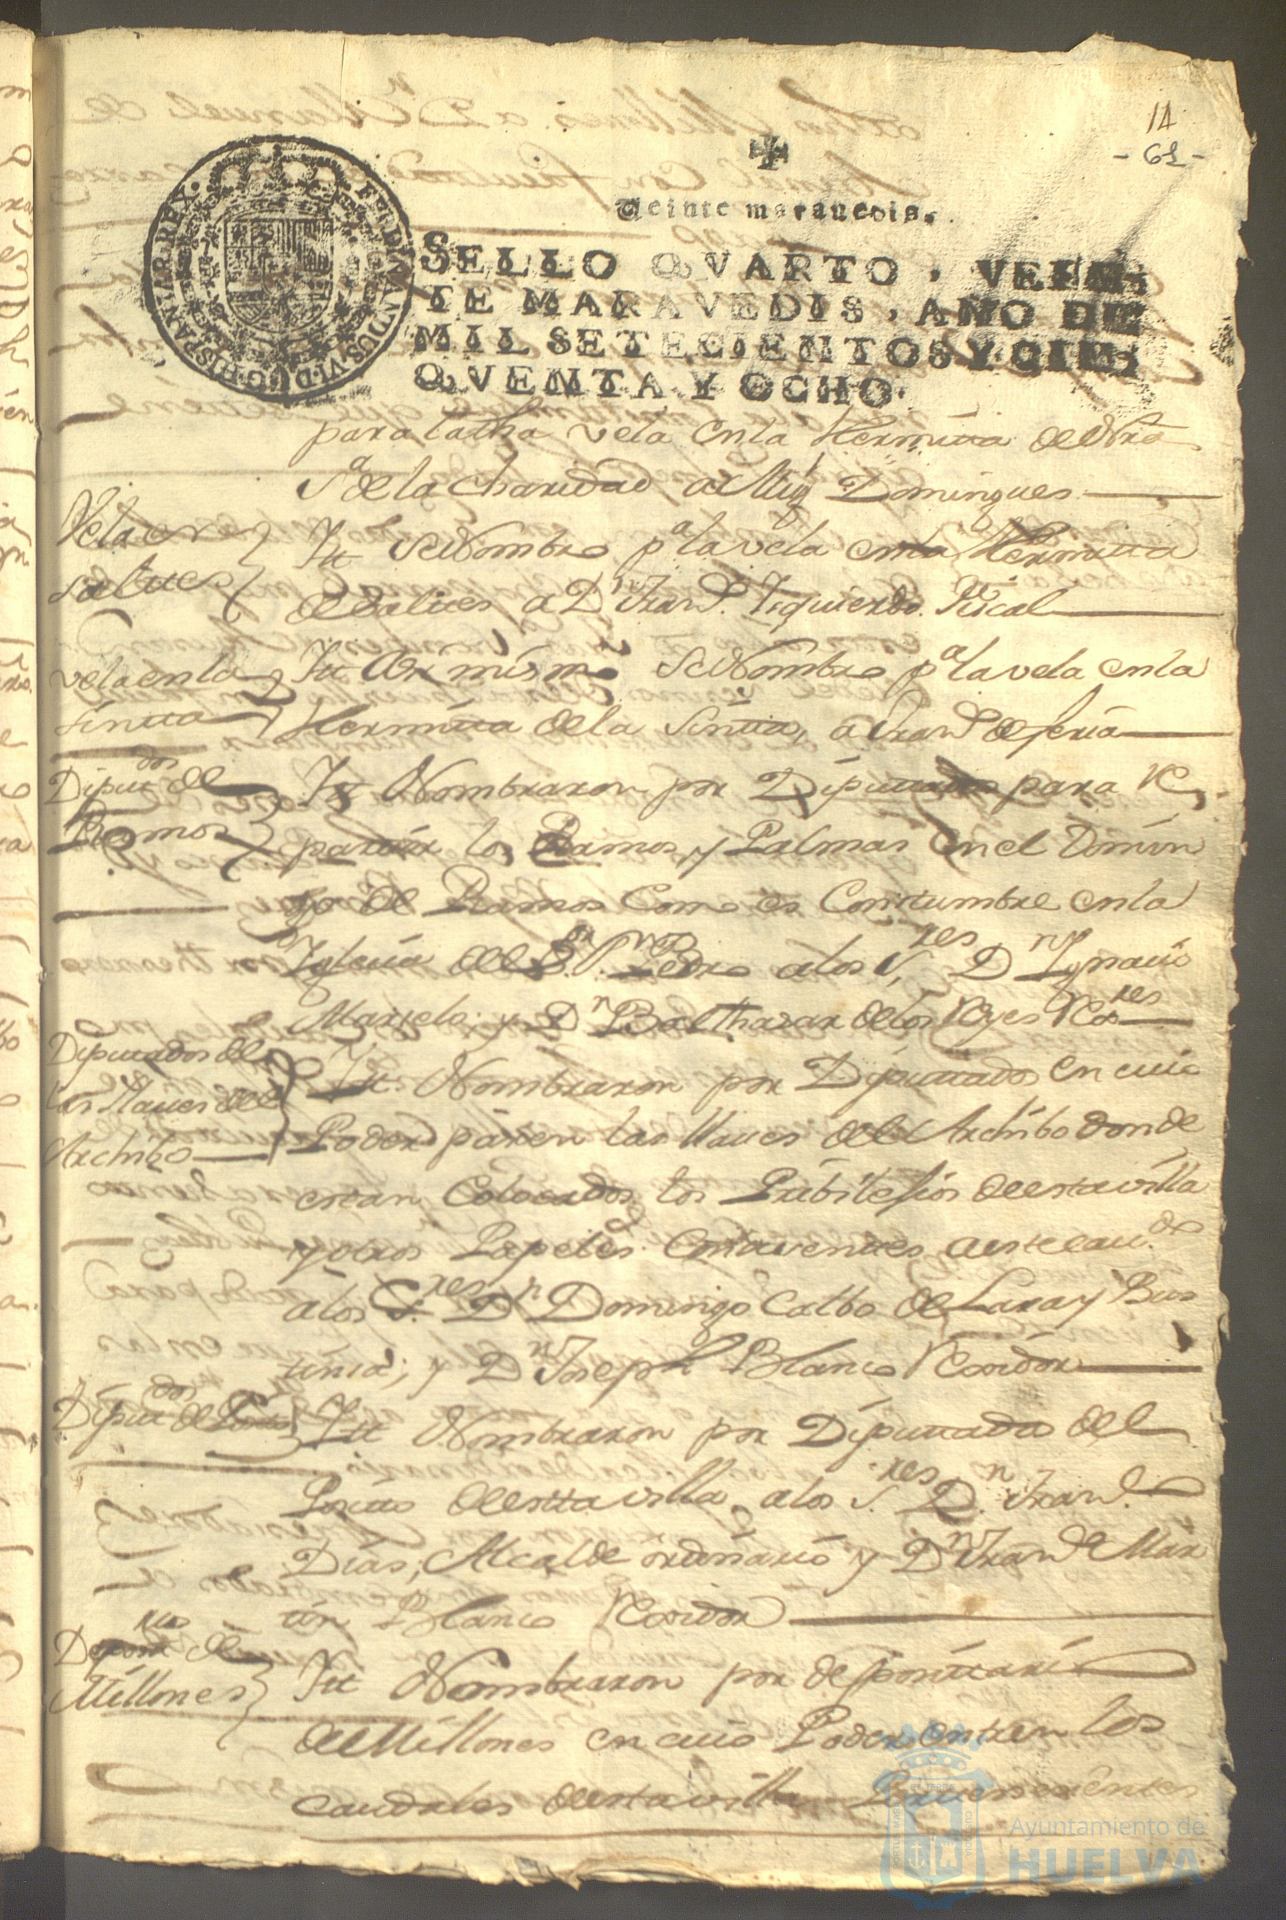 14
- 61 -
Veinte maravedis.
FERDINANDUS VI D G HISPANIAR REX
SELLO QVARTO, VEIN-
TE MARAVEDIS, AÑO DE
MIL SETECIENTOS Y CIN-
QVENTA Y OCHO.
para la tha vela en la Hermitta de Nra
Sa de la Charidad a Migl Domingues
Vela en
Saltes
Itt Se Nombro pa la vela en la Hermitta
de Saltes a Dn Frando Izquierdo Fiscal
vela en la
Sintta
Itt Se Nombro pa la vela en la
Hermitta de la Sintta, a Frando de feria
Diputdos de
Ramos
Itt Nombraron por Diputtados para Re-
partir los Ramos, y Palmas en el Domin
go de Ramos Como es Constumbre en la
Iglecia de Sn Pedro a los Sres Dn Ignacio
y Dn Balthazar de los Reyes Rexres
Diputados de
las llaues del
Archibo
Itt Nombraron por Diputtados en cuio
Poder paren las llaues del Archibo donde
estan Colocados los Pribilexios de esta villa
y otros Papeles a este cau.do
a los Sres Dn Domingo Calbo de Lara y Bus
y Dn Joseph Blanco Rexidor
Diputdos de Posito
Itt Nombraron por Diputtados del
Positto de estta villa a los Sres Dn Frando
Dias, Alcalde ordinario y Dn Frando Mar
tin Blanco Rexidor
de
Millones
Itt Nombraron por depositario
de Millones en cuio Poder entren los
caudales de esta villa
Ayuntamiento de
HUELVA